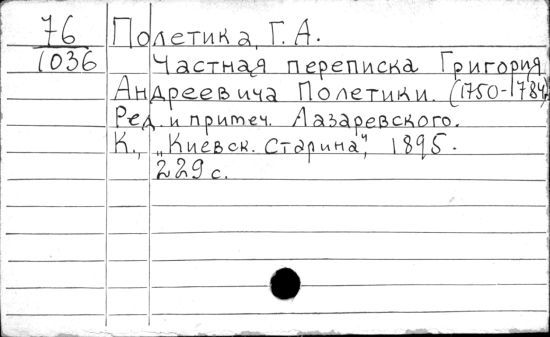 76 Полетика, Г. А.
1036 Частная переписка Григория
Андреевича Полетики. (1750-1784)
Ред. и примеч. Лазаревского.
К., „Киевск. старина“, 1895.
229 с.